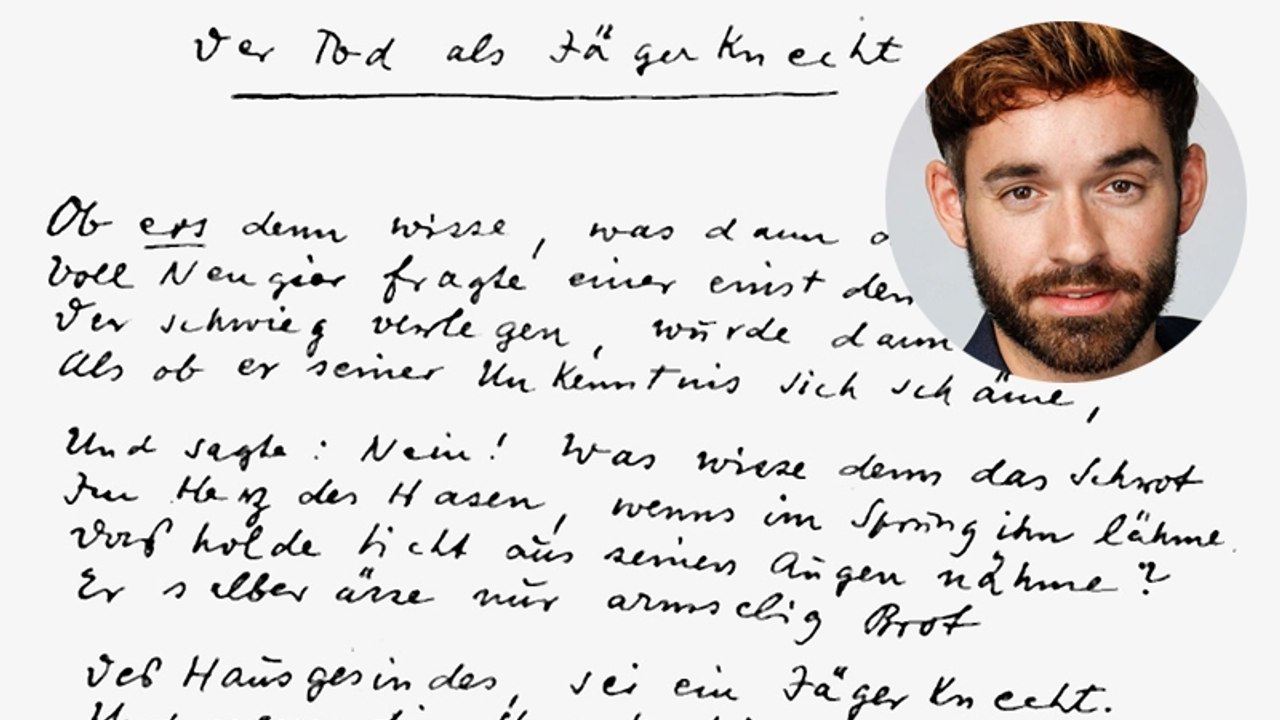 Der Tod als Jägerknecht
Ob ers denn wisse, was dann
Voll Neugier fragte einer einst den
Der schwieg verlegen, würde dann
Als ob er seiner Unkenntnis sich schäme,
Und sagte: Nein! Was wisse denn das Schrot
Im Herz des Hasen, wenns im Sprung ihn lähme
Das holde Licht aus seinen Augen nähme?
Er selber ässe nur armselig Brot
Des Hausgesindes, sei ein Jägerknecht.